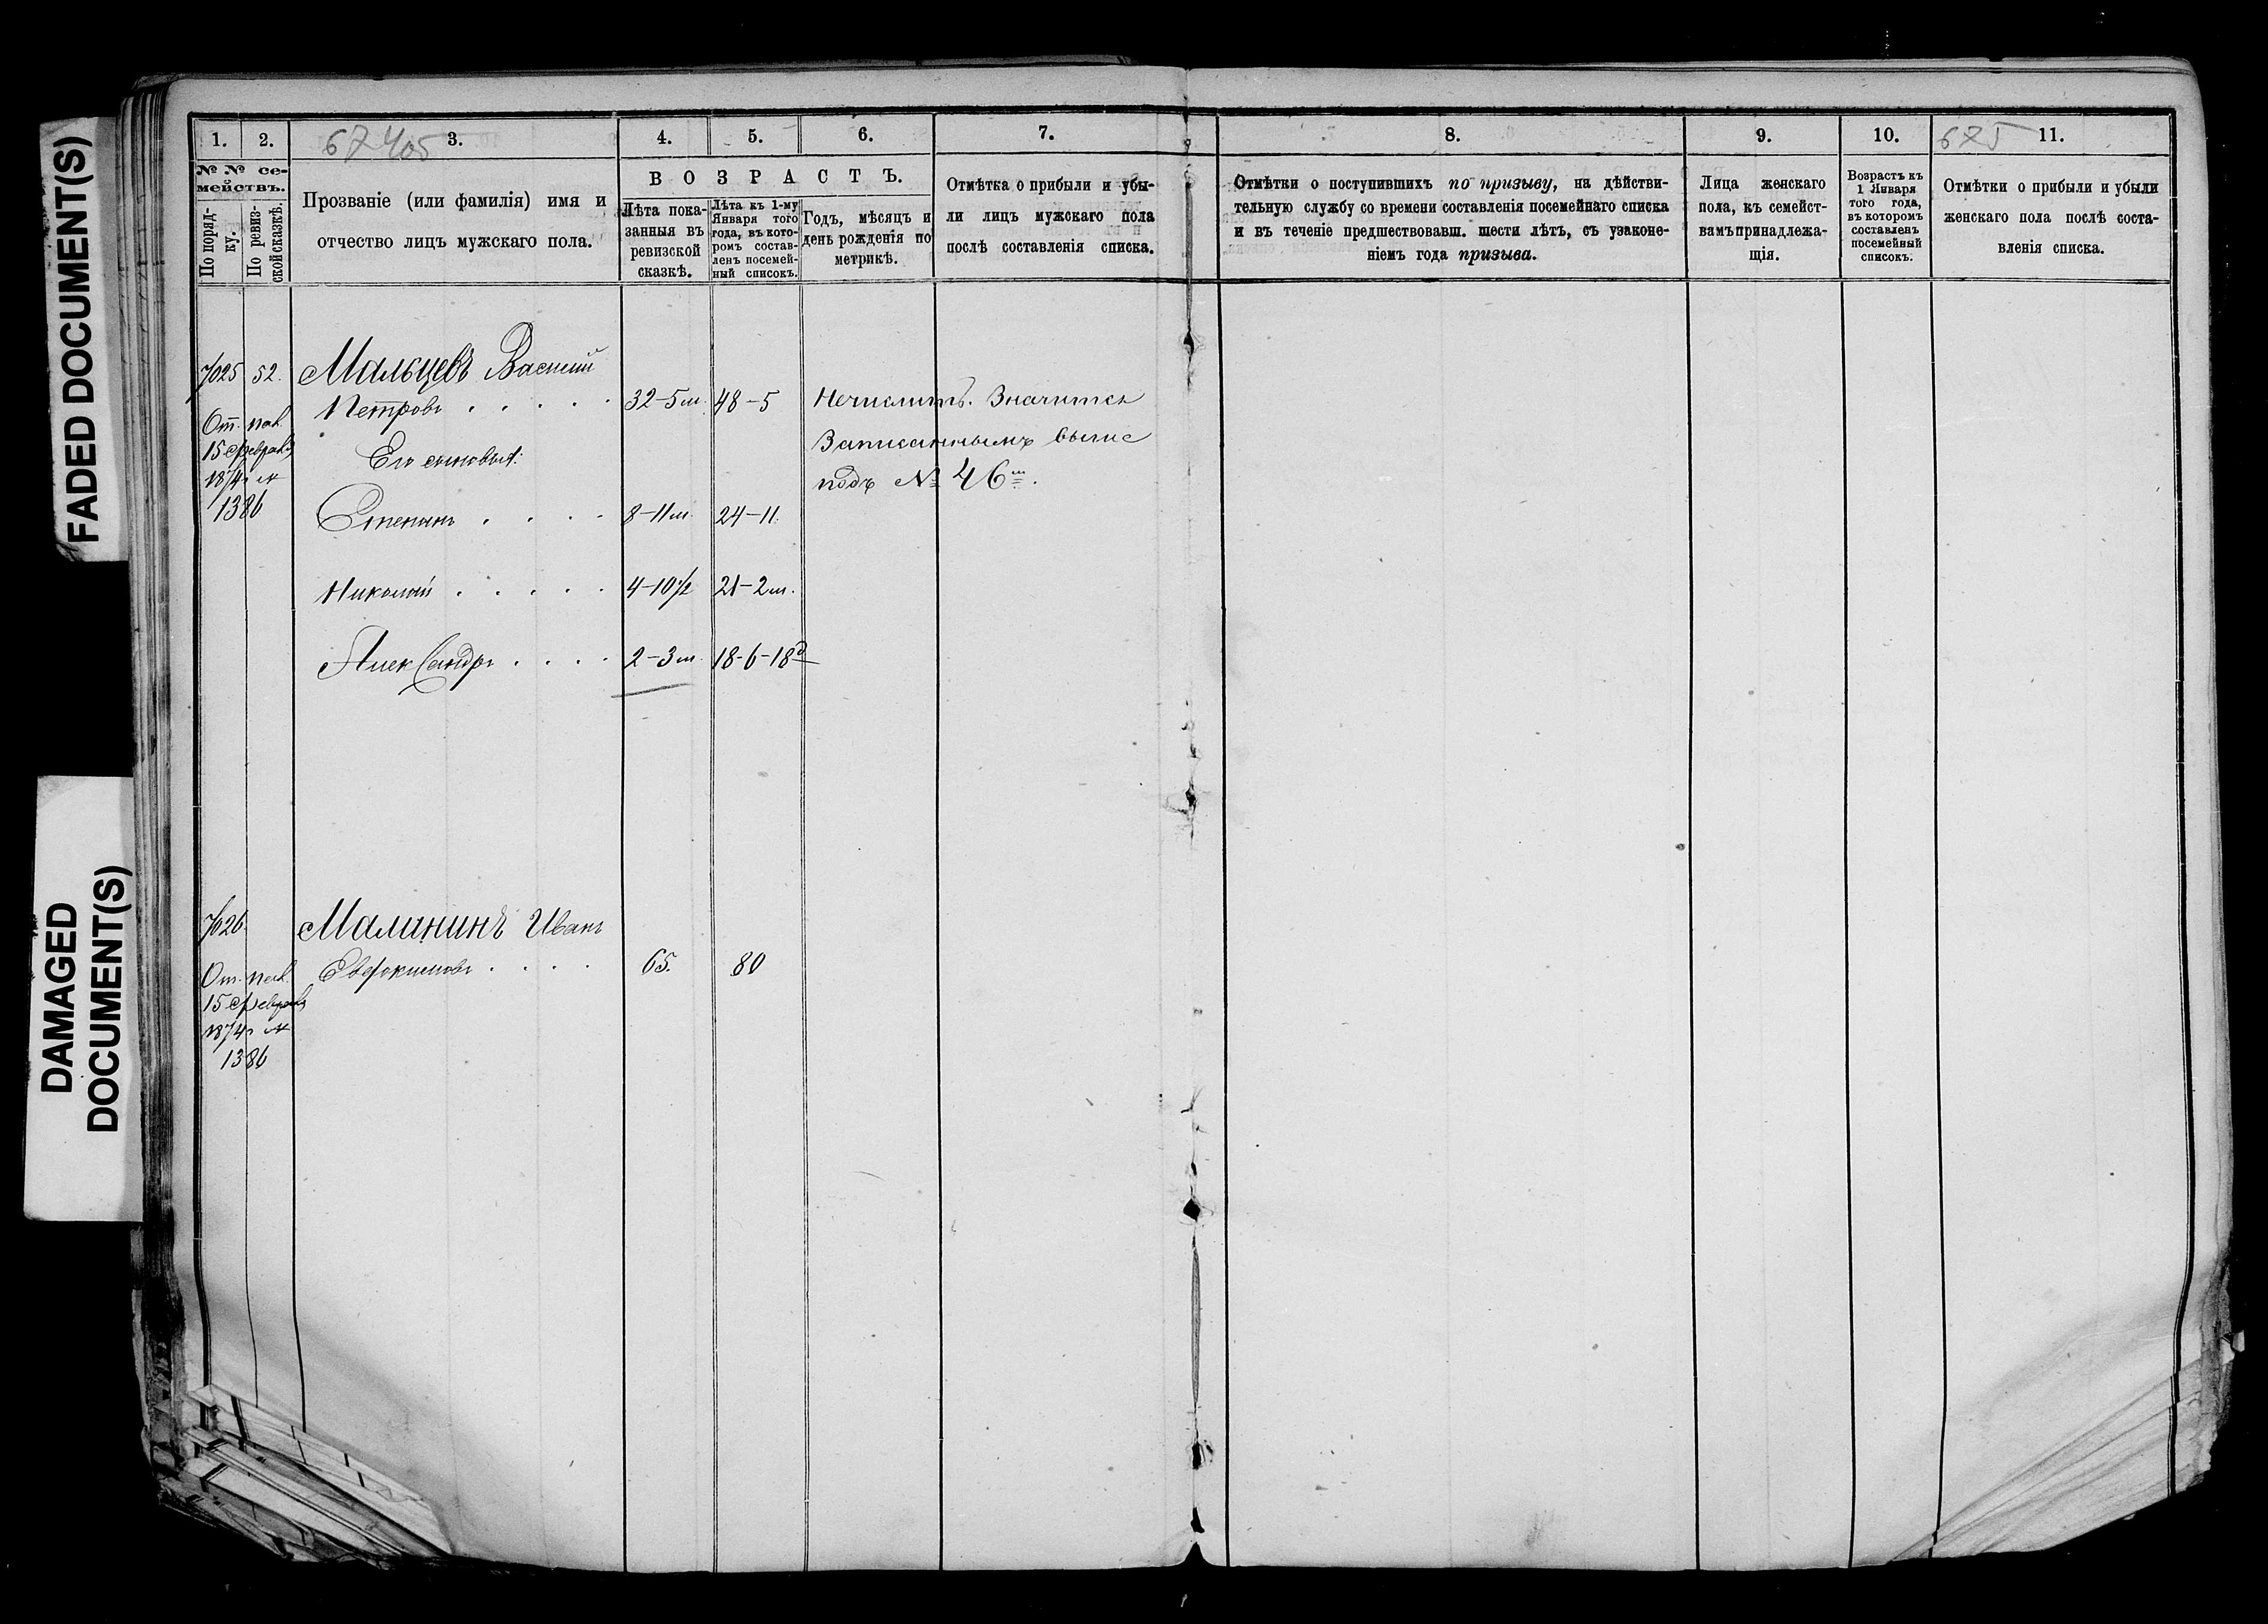 FADED DOCUMENT(S)
DAMAGED
DOCUMENT(S)
1.
2.
3.
4.
5.
6.
7.
8.
9.
10.
11.
67405
675
№ № се-
мействъ.
По поряд-
ку.
По ревиз-
ской сказкѣ.
Прозваніе (или фамилія) имя и
отчество лицъ мужскаго пола.
ВОЗРАСТЪ.
Лѣта пока-
занныя въ
ревизской
сказкѣ.
Лѣта къ 1-му
Января того
года, въ кото-
ромъ состав-
ленъ посемей-
ный списокъ.
Годъ, мѣсяцъ и
день рожденія по
метрикѣ.
Отмѣтка о прибыли и убы-
ли лицъ мужскаго пола
послѣ составленія списка.
Отмѣтки о поступившихъ по призыву, на дѣйстви-
тельную службу со времени составленія посемейнаго списка
и въ теченіе предшествовавш. шести лѣтъ, съ узаконе-
ніемъ года призыва.
Лица женскаго
пола, къ семейст-
вамъ принадлежа-
щія.
Возрастъ къ
1 Января
того года,
въ которомъ
составленъ
посемейный
списокъ.
Отмѣтки о прибыли и убыли
женскаго пола послѣ соста-
вленія списка.
7025 52. Мальцевъ Василій
Петровъ . . . . . 32-5м. 48-5 Нечислить. Значится
Записаннымъ выше
подъ № 46м.
От. пов.
15 Февраля
1874г. №
1386
Его сыновья:
Степанъ . . . . 8-11м. 24-11.
Николай . . . . . 4-10½ 21-2м.
Александръ . . . . 2-3м. 18-6-18д
7026. Малининъ Иванъ
Евдокимовъ . . . . 65. 80
От. пов.
15 Февраля
1874г. №
1386